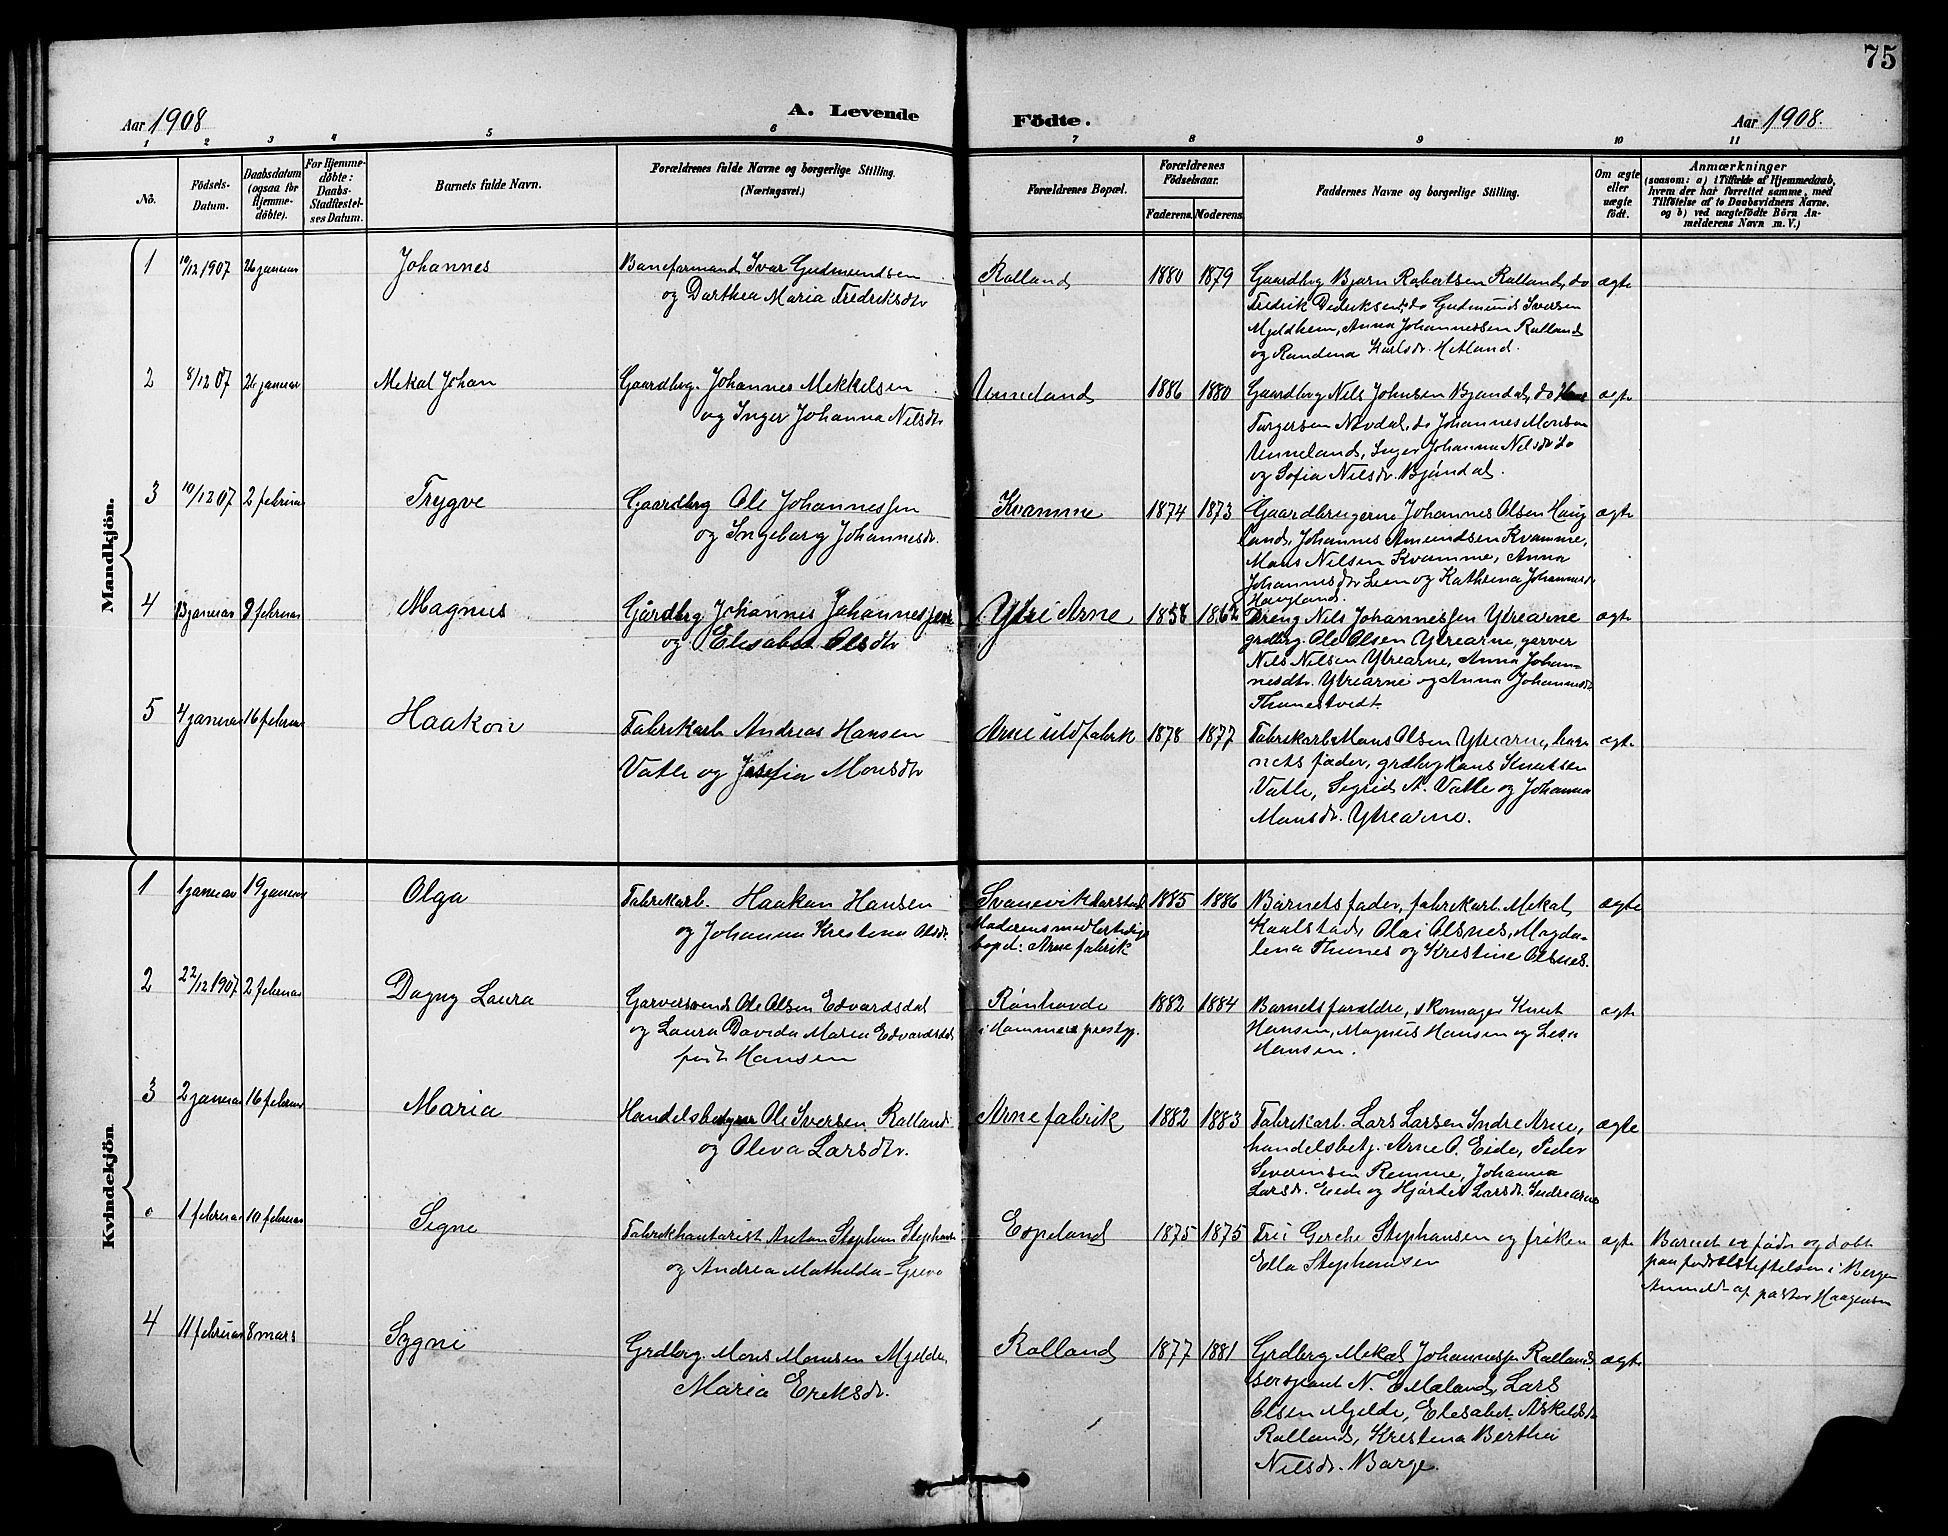 75
Aar 1908
A. Levende
Födte.
Aar 1908.
1 2 3 4 5 6 7 8 9 10 11
No.
Födsels-
Datum.
Daabsdatum
(ogsaa for
Hjemme-
døbte).
For Hjemme-
døbte:
Daabs-
Stadfæstel-
ses Datum.
Barnets fulde Navn.
Forældrenes fulde Navne og borgerlige Stilling.
(Næringsvei.)
Forældrenes Bopæl.
Forældrenes
Födselsaar.
Faderens.
Moderens.
Faddernes Navne og borgerlige Stilling.
Om ægte
eller
uægte
født.
Anmærkninger
(saasom: a) i Tilfælde af Hjemmedaab,
hvem der har forrettet samme, med
Tilföielse af to Daabsvidners Navne.
og b) ved uægtefödte Börn An-
melderens Navn m. V.)
Mandkjön.
1 19/12 1907 26 januar Johannes
Baneformand Ivar Gudmundsen
og Dorthea Maria Fredriksdtr
Ralland 1880 1879
Gaardbrg Bjørn Robertsen Ralland, do
Fredrik Dedriksen, do Gudmund Iversen
Mjeldhem, Anna Johannessen Ralland
og Randena Karlsdr. Hetland.
ægte
2 8/12 07 26 januar Mekal Johan
Gaardbrg. Johannes Mekkelsen
og Inger Johanna Nilsdtr
Unneland 1886 1880
Gaardbrg Nils Johnsen Bjøndal, do
Torgersen Novdal, do Johannes Monsen
Unneland, Inger Johanna Nilsdr do
og Sofia Nilsdr. Bjøndal.
ægte
3 19/12 07 2 februar Trygve
Gaardbrg Ole Johannessen
og Ingeborg Johannesdr.
Kvamme 1874 1873
Gaardbrugerne Johannes Olsen Haug
land, Johannes Amundsen Kvamme,
Mons Nilsen Kvamme, Anna
Johannesdr Leen og Kathrina Johannesdr
Haugland.
ægte
4 13 januar 9 februar Magnus
Gårdbrg Johannes Johannessen
og Elisabet Olsdtr
Ytre Arne 1858 1862
Dreng Nils Johannessen Ytrearne
grdbrg. Ole Olsen Ytrearne, garver
Nils Nilsen Ytrearne, Anna Johan-
nesdtr. Ytrearne og Anna Johannesdr
Thunestvedt.
ægte
5 4 januar 16 februar Haakon
Fabrikarb Andreas Hansen
Valle og Josefia Monsdtr
Arne uldfabrik 1878 1877
Fabrikarb Mons Olsen Ytrearne, bar
nets fader, grdbrg Hans Knutsen
Valle, Sigrid A. Valle og Johanna
Monsdr. Ytrearne.
ægte
Kvindekjön
1 1 januar 19 januar Olga
Fabrikarb. Haakon Hansen
og Johanna Kristina Olsdr.
Svanevik
Moderens medlertidige
bopel: Arne fabrik
1885 1886
Barnets fader, fabrikarb. Mekal
Kaalstad, Olai Olsnes, Magda-
lena Thunes og Kristine Olsnes.
ægte
2 22/12 1907 2 februar Dagny Laura
Garversvend Ole Olsen Edvardsdal
og Laura Davida Maria Edvardsdal
født Hansen
Rønhovde
i Hammers prestgj.
1882 1884
Barnets forældre, skomager Knut
Hansen, Magnus Hansen og
Hansen.
ægte
3 2 januar 16 februar Maria
Handelsbetyrer Ole Iversen Ralland
og Oleva Larsdtr.
Arne fabrik 1882 1883
Fabrikarb. Lars Larsen Indre Arne,
handelsbetj. Arne O. Eide, Peder
Severinsen Remme, Johanna
Larsdr. Eide og Hjørdis Larsdr. Indrearne
ægte
0 1 februar 10 februar Signe
Fabrikkontorist Anton Stephan Stephansen
og Andrea Mathilda Greve
Espeland 1875 1875
Frü Gerche Stephansen og frøken
Ella Stephansen
ægte
Barnet er født og døbt
paa fødselsstiftelsen i Bergen
Anmeldt af pastor Haagensen
4 11 februar 8 mars Sygni
Grdbrg. Mons Monsen Mjelde,
Maria Eriksdr.
Ralland 1877 1881
Grdbrg Mekal Johannessen Ralland
sersjeant N. E. Mæland, Lars
Olsen Mjelde, Elesabet Askildsdr
Ralland, Kristena Berthea
Nilsdr. Borge.
ægte